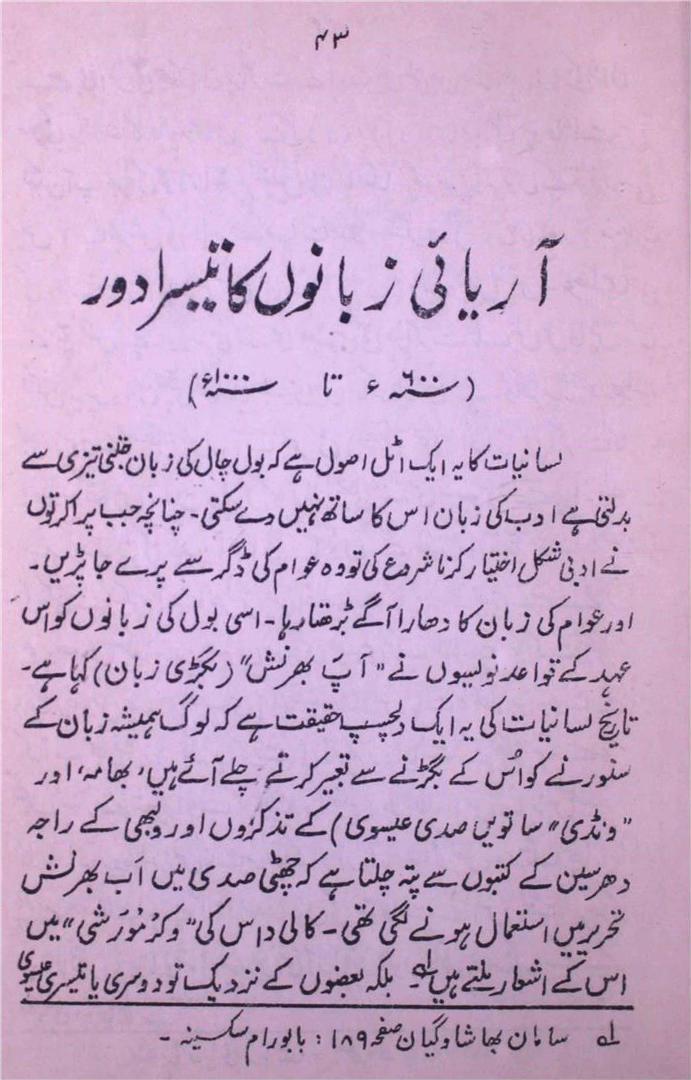 ۴۳
آریائی زبانوں کا تیسرا دور
(سنہ ۶۰۰ء تا سنہ ۱۰۰۰ء)
لسانیات کا یہ ایک اٹل اصول ہے کہ بول چال کی زبان جتنی تیزی سے
بدلتی ہے ادب کی زبان اس کا ساتھ نہیں دے سکتی۔ چنانچہ جب پراکرتوں
نے ادبی شکل اختیار کرنا شروع کی تو وہ عوام کی ڈگر سے پرے جا پڑیں۔
اور عوام کی زبان کا دھارا آگے بڑھتا رہا۔ اسی بول کی زبانوں کو اس
عہد کے قواعد نویسوں نے "اَپَ بھرنش" (بگڑی زبان) کہا ہے۔
تاریخ لسانیات کی یہ ایک دلچسپ حقیقت ہے کہ لوگ ہمیشہ زبان کے
سنورنے کو اُس کے بگڑنے سے تعبیر کرتے چلے آئے ہیں، بھامہ، اور
"ونڈی" ساتویں صدی عیسوی) کے تذکروں اور ولبھی کے راجہ
دھرسین کے کتبوں سے پتہ چلتا ہے کہ چھٹی صدی میں اَپ بھرنش
تحریر میں استعمال ہونے لگی تھی۔ کالی داس کی "وکرمُورَشی" میں
اس کے اشعار ملتے ہیں۱ے۔ بلکہ بعضوں کے نزدیک تو دوسری یا تیسری عیسوی
۱ے سامان بھاشا وگیان صفحہ ۱۸۹: بابو رام سکسینہ۔